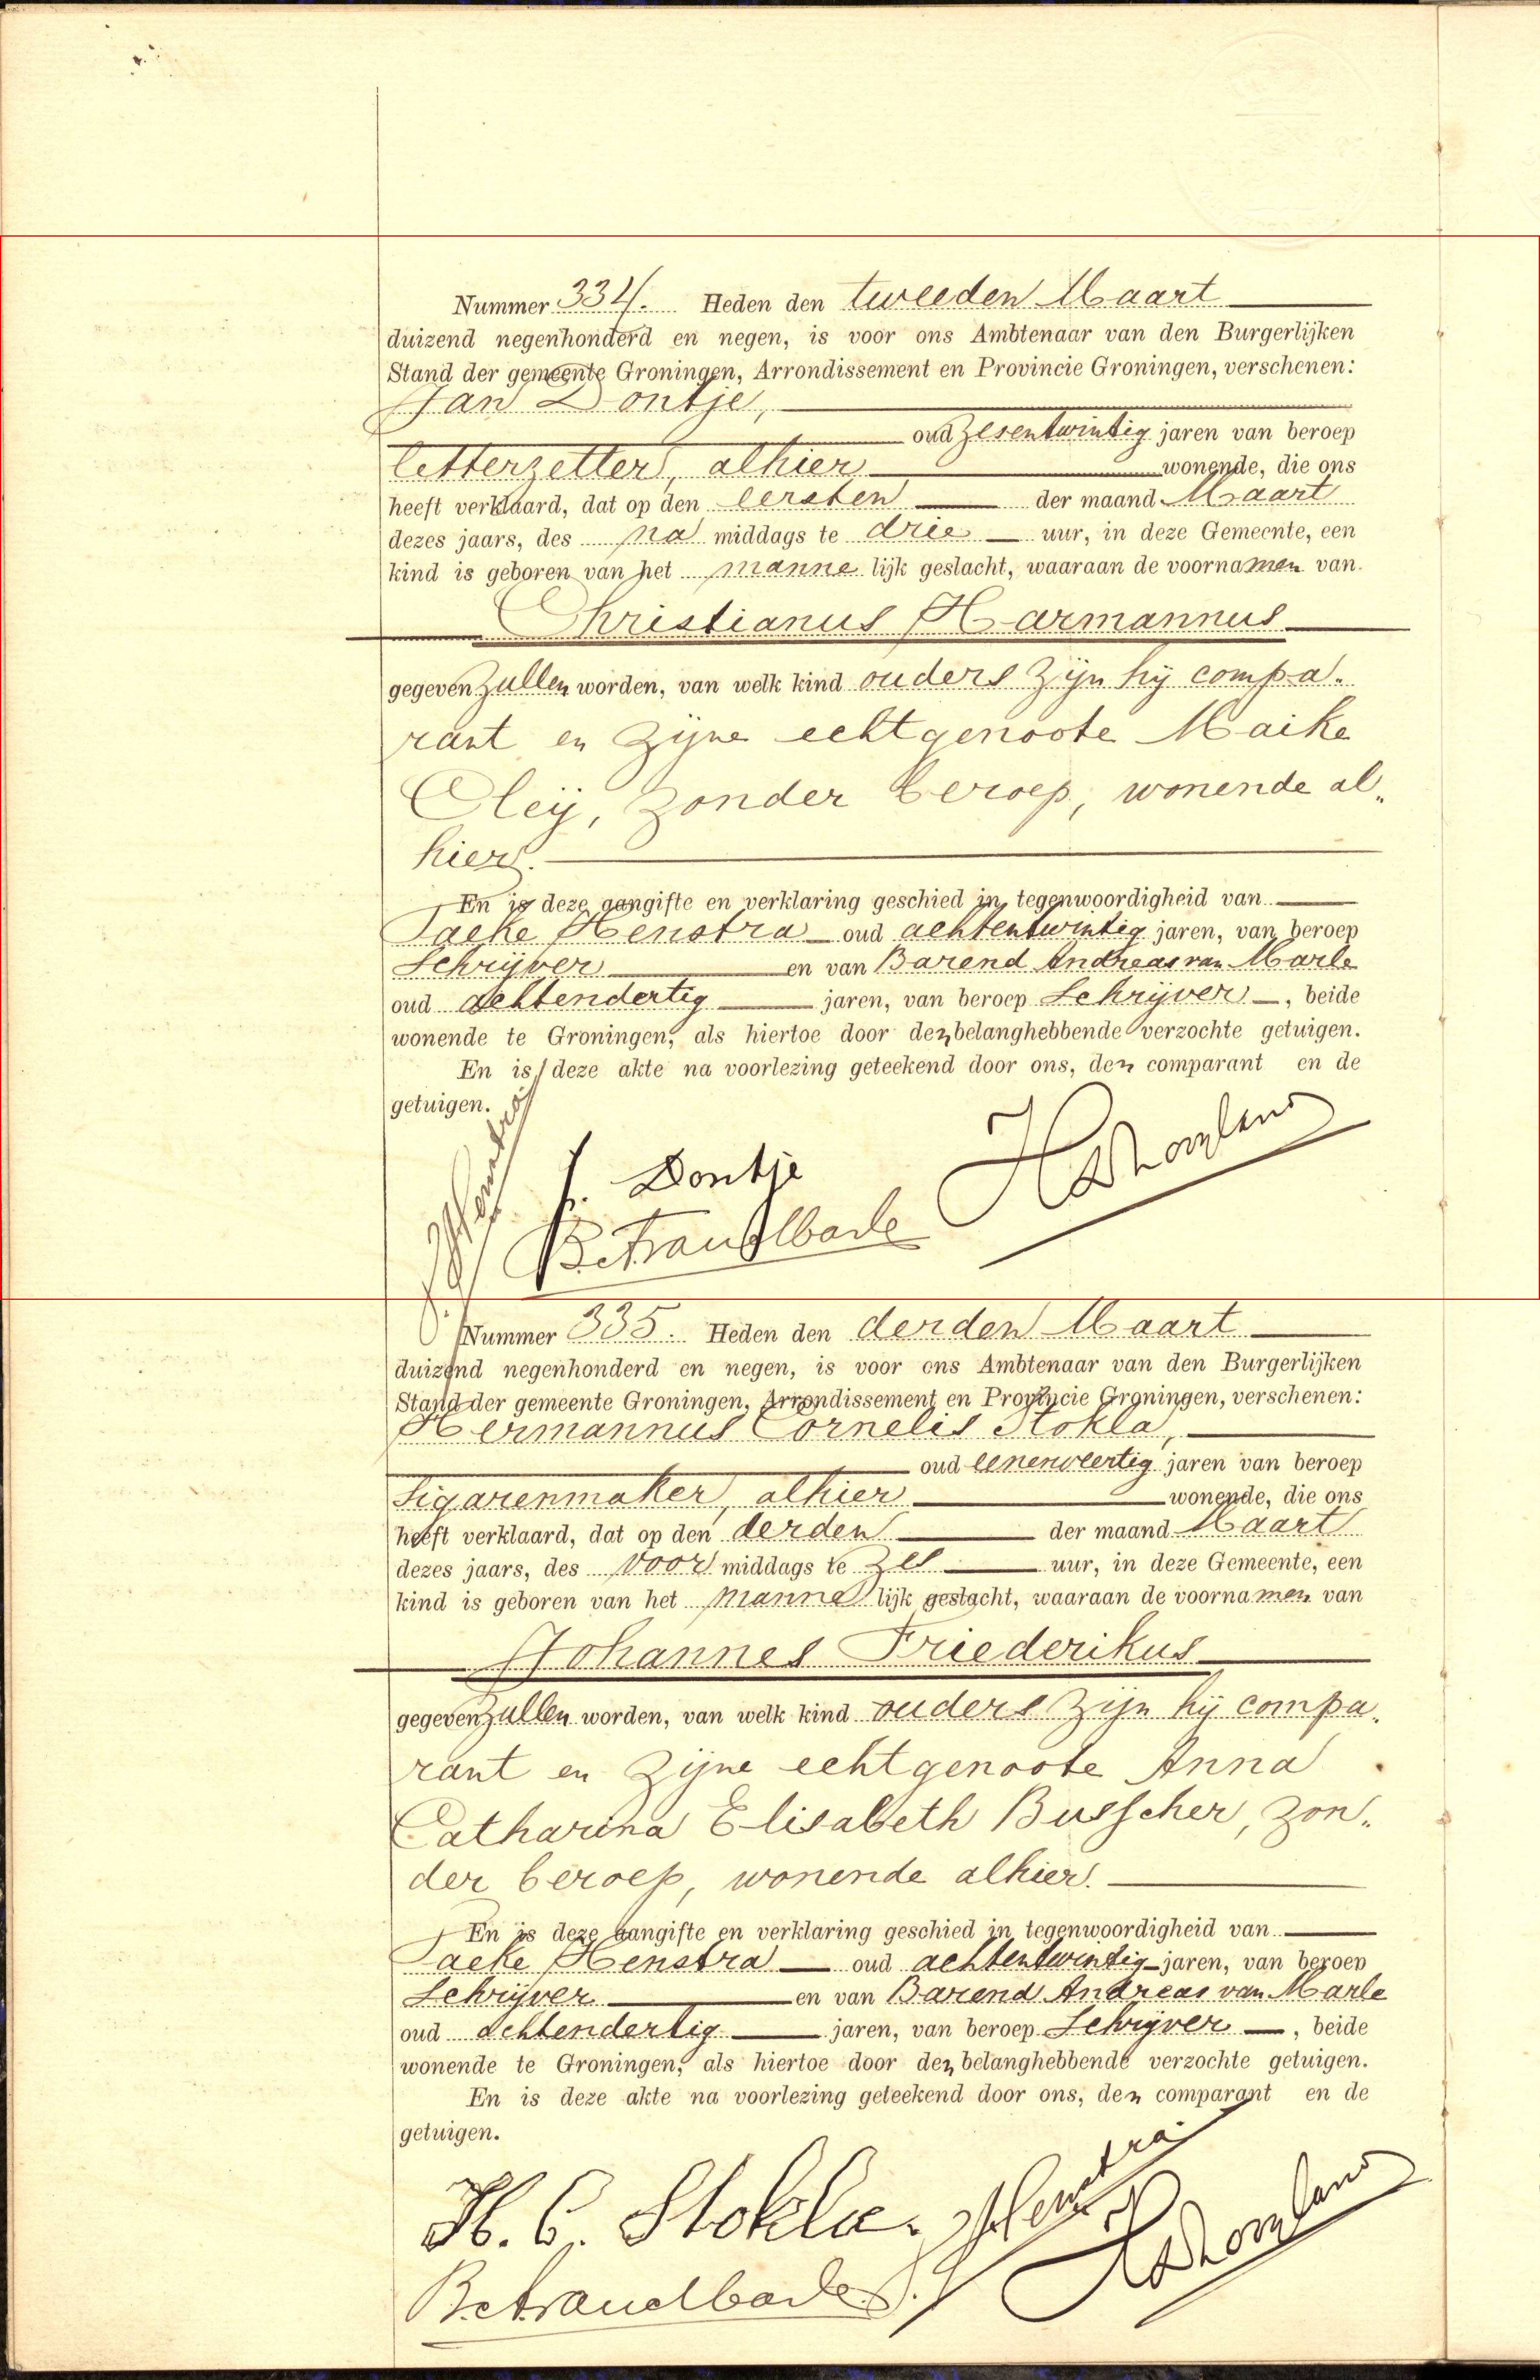 Nummer 334. Heden den tweeden Maart
duizend negenhonderd en negen, is voor ons Ambtenaar van den Burgerlijken
Stand der gemeente Groningen, Arrondissement en Provincie Groningen, verschenen:
Jan Dontje,
oud zesentwintig jaren van beroep
letterzetter, alhier wonende, die ons
heeft verklaard, dat op den eersten der maand Maart
dezes jaars, des na middags te drie uur, in deze Gemeente, een
kind is geboren van het manne lijk geslacht, waaraan de voornamen van
Christianus Harmannus
gegeven zullen worden, van welk kind ouders zijn hij compa„
rant en zijne echtgenoote Maike
Oleij, zonder beroep, wonende al„
hier.
En is deze aangifte en verklaring geschied in tegenwoordigheid van
Taeke Henstra oud achtentwintig jaren, van beroep
Schrijver en van Barend Andreas van Marle
oud achtendertig jaren, van beroep Schrijver, beide
wonende te Groningen, als hiertoe door den belanghebbende verzochte getuigen.
En is deze akte na voorlezing geteekend door ons, den comparant en de
getuigen.
Henstra
J. Dontje
BAvanMarle
Nummer 335. Heden den derden Maart
duizend negenhonderd en negen, is voor ons Ambtenaar van den Burgerlijken
Stand der gemeente Groningen, Arrondissement en Provincie Groningen, verschenen:
Hermannus Cornelis Stokla,
oud eenenveertig jaren van beroep
Sigarenmaker, alhier wonende, die ons
heeft verklaard, dat op den derden der maand Maart
dezes jaars, des voor middags te zes uur, in deze Gemeente, een
kind is geboren van het manne lijk geslacht, waaraan de voornamen van
Johannes Friederikus
gegeven zullen worden, van welk kind ouders zijn hij compa„
rant en zijne echtgenoote Anna
Catharina Elisabeth Busscher, zon„
der beroep, wonende alhier.
En is deze aangifte en verklaring geschied in tegenwoordigheid van
Taeke Henstra oud achtentwintig jaren, van beroep
Schrijver en van Barend Andreas van Marle
oud achtendertig jaren, van beroep Schrijver, beide
wonende te Groningen, als hiertoe door den belanghebbende verzochte getuigen.
En is deze akte na voorlezing geteekend door ons, den comparant en de
getuigen.
H. C. Stokla. Henstra
BAvanMarle